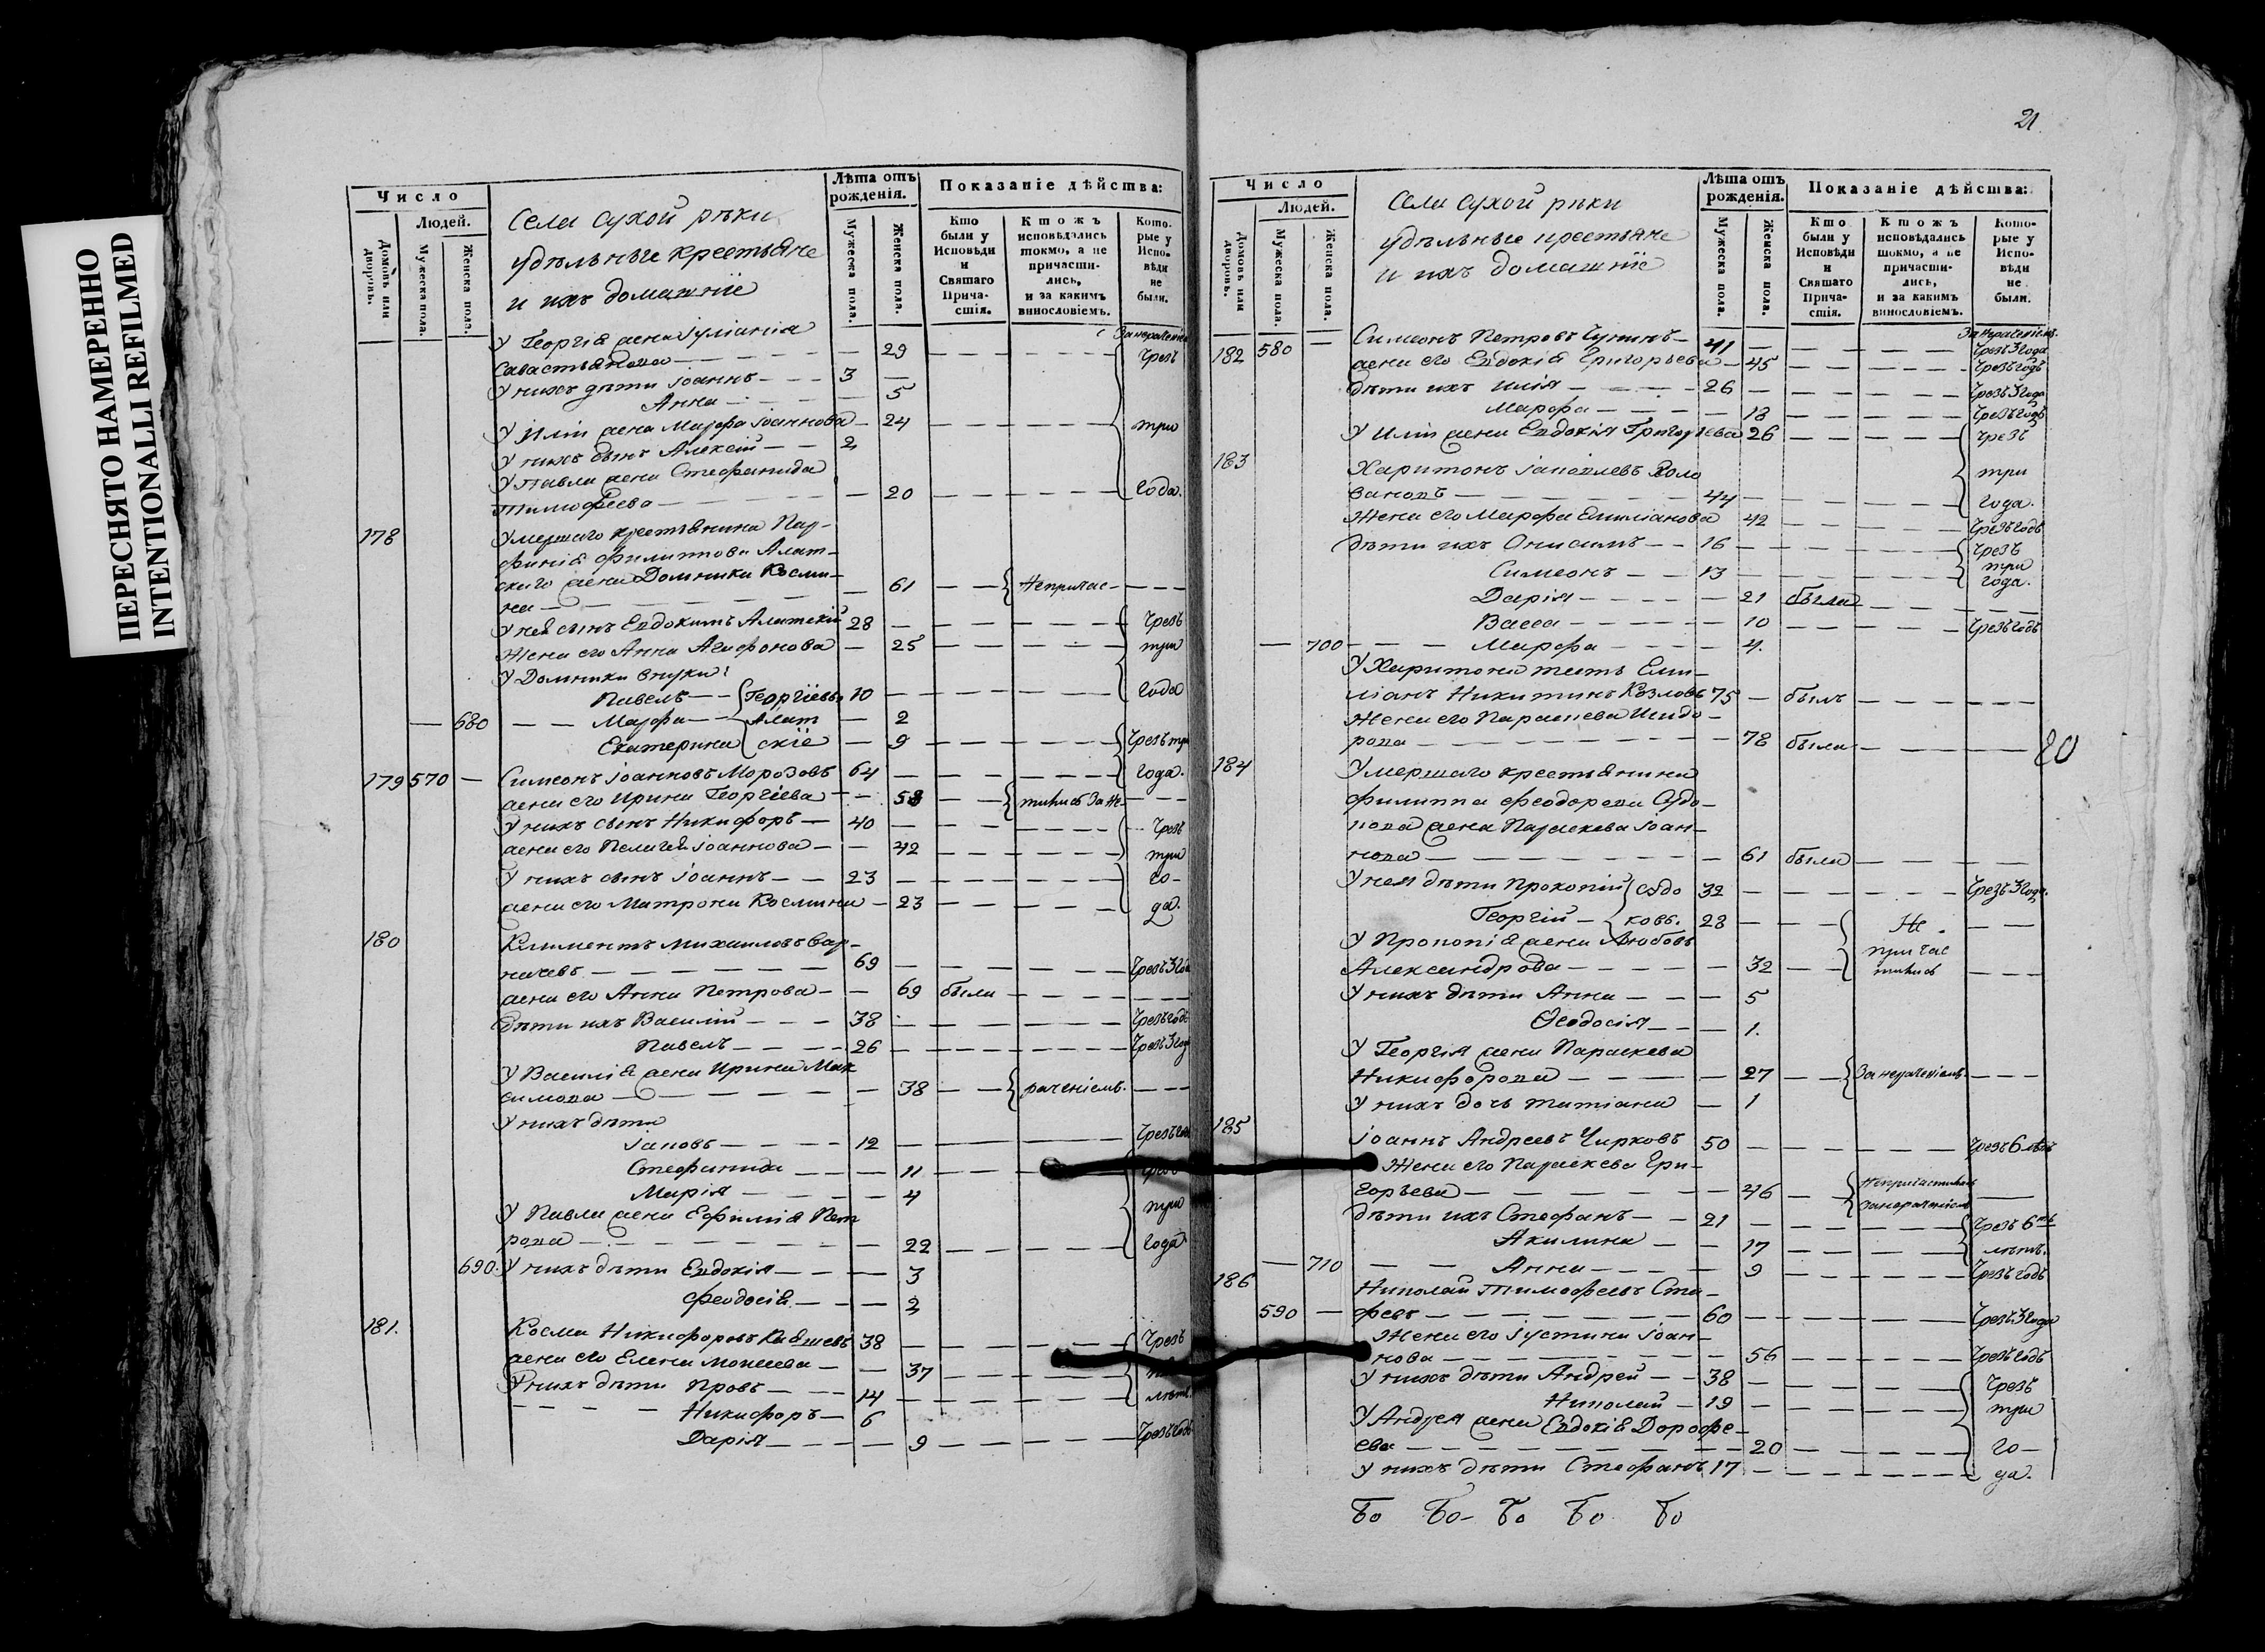 ПЕРЕСНЯТО НАМЕРЕННО
INTENTIONALLI REFILMED
Число
Людей.
Домовъ или дворовъ.
Мужеска пола.
Женска пола.
Села Сухой рѣки
удѣльные крестьяне
и ихъ домашнїе
Лѣта отъ рожденія.
Мужеска пола.
Женска пола.
Показаніе дѣйства:
Кто были у Исповѣди и Святаго Причастія.
Ктожъ исповѣдались токмо, а не причастились, и за какимъ винословіемъ.
Которые у Исповѣди не были.
У Георгія жена Іуліанія
Савастьянова — 29 Чрезъ
У нихъ дѣти Іоаннъ 3 —
Анна — 5
У Иліи жена Марфа Іоаннова — 24 три
У нихъ сынъ Алексій 2
У Павла жена Стефанида
Тимофеева — 20 года.
178 Умершаго крестьянина Пар-
фенія Филиппова Алат-
скаго жена Домника Косми-
на — 61 Непричас-
У нея сынъ Евдокимъ Алатскій 28 — Чрезъ
Жена его Анна Агафонова — 25 три
У Домники внуки
Павелъ Георгіевы 10 — года
— 680 — Марфа Алат — 2
Екатерина скіе — 9 Чрезъ три
179 570 — Симеонъ Іоанновъ Морозовъ 64 — года.
жена его Ирина Георгіева — 58 тились за не-
У нихъ сынъ Никифоръ 40 — Чрезъ
жена его Пелагея Іоаннова — 42 три
У нихъ сынъ Іоаннъ 23 — го-
жена его Матрона Космина — 23 да.
180 Климентъ Михаиловъ Вар-
ничевъ 69 — Чрезъ 3 года
жена его Анна Петрова — 69 была
Дѣти ихъ Василій 38 — Чрезъ годъ
Павелъ 26 — Чрезъ 3 года
У Василія жена Ирина Мак
симова — 38 раченіемъ.
У нихъ дѣти
Іаковъ 12 — Чрезъ годъ
Стефанида — 11 Чрезъ
Марія — 4
У Павла жена Ефимія Пет
рова — 22 три года
690. У нихъ дѣти Евдокія — 3
Феодосія — 2
181. Косма Никифоровъ 38 — Чрезъ
жена его Елена Моисеева — 37
У нихъ дѣти Провъ 14 — лѣтъ
Никифоръ 6
Дарія — 9 Чрезъ годъ
21
Число
Людей.
Домовъ или дворовъ.
Мужеска пола.
Женска пола.
Села Сухой рѣки
удѣльные крестьяне
и ихъ домашнїе
Лѣта отъ рожденія.
Мужеска пола.
Женска пола.
Показаніе дѣйства:
Кто были у Исповѣди и Святаго Причастія.
Ктожъ исповѣдались токмо, а не причастились, и за какимъ винословіемъ.
Которые у Исповѣди не были.
За нераченіемъ.
182 580 — Симеонъ Петровъ 41 — Чрезъ 3 года
жена его Евдокія Григорьева — 45 Чрезъ годъ
Дѣти ихъ Илія 26 — Чрезъ 3 года
Марфа — 18 Чрезъ годъ
У Иліи жена Евдокія Григорьева 26 Чрезъ
183 Харитонъ Іаковлевъ Холо три
вановъ 44 — года.
Жена его Марфа Емиліанова 42 Чрезъ годъ
Дѣти ихъ Онисимъ 16 — Чрезъ
Симеонъ 13 — три года.
Дарія — 21 была
Васса — 10 Чрезъ годъ
— 700 — Марфа — 4.
У Харитона тесть Еми-
ліанъ Никитинъ Козловъ 75 — былъ
Жена его Параскева Исидо-
рова — 78 была
80
184 Умершаго крестьянина
Филиппа Феодорова Судо-
кова жена Параскева Іоан-
нова — 61 была
У нея дѣти Прокопій Судо 32 — Чрезъ 3 года.
Георгій ковы. 28 — Не
У Прокопія жена Любовь причас
Александрова — 32 тились
У нихъ дѣти Анна — 5
Ѳеодосія — 1.
У Георгія жена Параскева
Никифорова — 27 За нераченіемъ.
У нихъ дочь Татіана — 1
185 Іоаннъ Андреевъ Чирковъ 50 — Чрезъ 6 лѣтъ
Жена его Параскева Гри-
горьева — 46 Непричастилась за нераченіемъ
Дѣти ихъ Стефанъ 21 — Чрезъ 6ть
Акилина — 17 лѣтъ.
— 710 — Анна — 9 Чрезъ годъ
186 Николай Тимофеевъ Ста-
590 — феевъ 60 — Чрезъ 3 года
Жена его Іустина Іоан-
нова — 56 Чрезъ годъ
У нихъ дѣти Андрей 38 — Чрезъ
Николай 19 — три
У Андрея жена Евдокія Дорофе-
ева — 20 го-
У нихъ дѣти Стефанъ 17 — да.